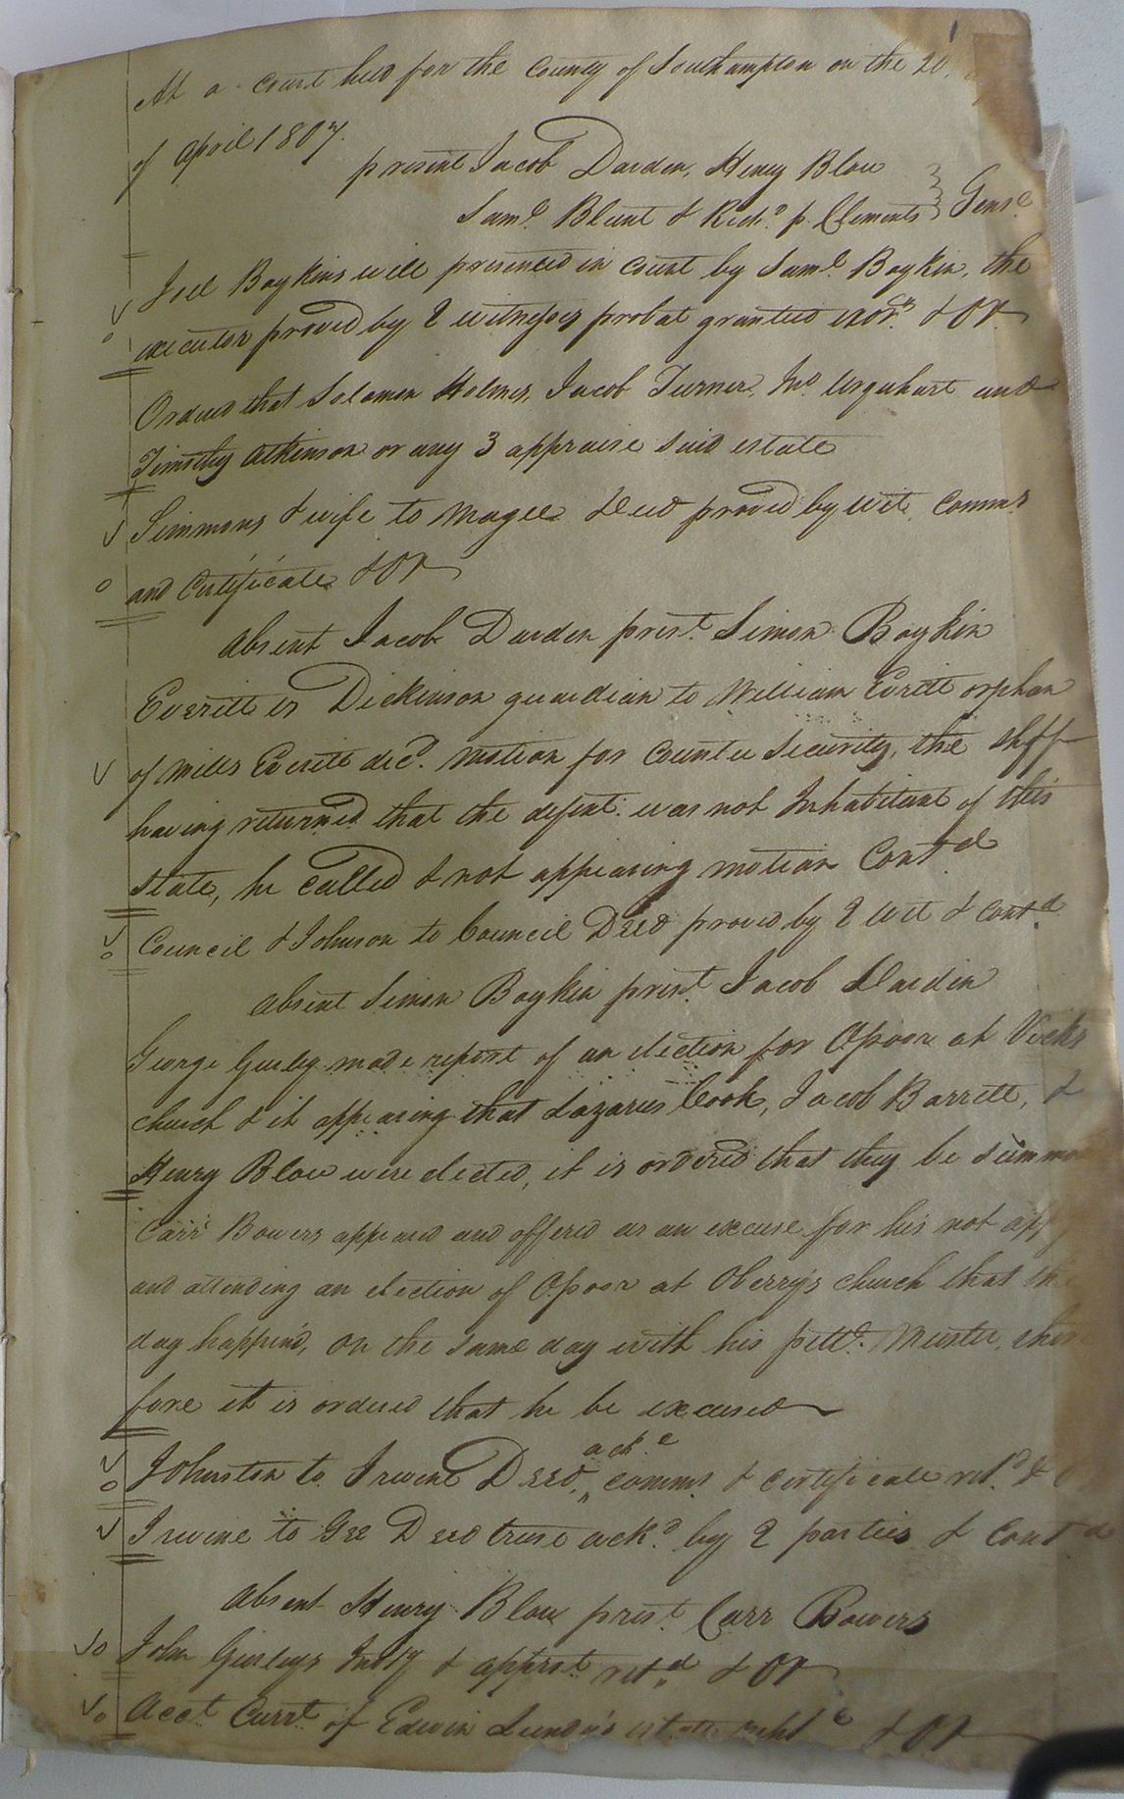 At a court held for the County of Southampton on the 20
of April 1807.
present Jacob Darden, Henry Blow
Saml. Blunt & Richd. p. Clements } Gent
Joel Boykins will presented in court by Saml. Boykin, the
executor proved by 2 witnesses probat granted exor. & OR
Ordered that Solomon Holmes, Jacob Turner, Jno. Urquhart and
Timothy Atkinson or any 3 appraise said estate
Simmons & wife to Magee Deed proved by wit. Comms.
and Certificate & OR
Absent Jacob Darden prest. Simon Boykin
Everitt vs Dickinson guardian to William Evritt orphan
of Mills Everitt decd. Motion for Counter Security, the shff
having returned that the defent. was not Inhabitant of this
State, he called & not appearing motion Contd
Council & Johnson to Council Deed proved by 2 wit & Contd
absent Simon Boykin prest. Jacob Darden
George Gurley made report of an election for Opoor at Vicks
church & it appearing that Lazarus Cook, Jacob Barrett, &
Henry Blow were elected, it is ordered that they be
Carr Bowers appeared and offered as an excuse for his not
and attending an election of Opoor at Oberry's church that
day happend, on the same day with his Muster,
fore it is ordered that he be excused
Johnston to Irvine Deed, ackd comms. & certificate retd. &
Irvine to Gee Deed trust ackd. by 2 parties & Contd
Absent Henry Blow prest. Carr Bowers
John Gurleys Invty & apprst. retd & OR
Acct Currt of Edwin Lundy's estate & OR